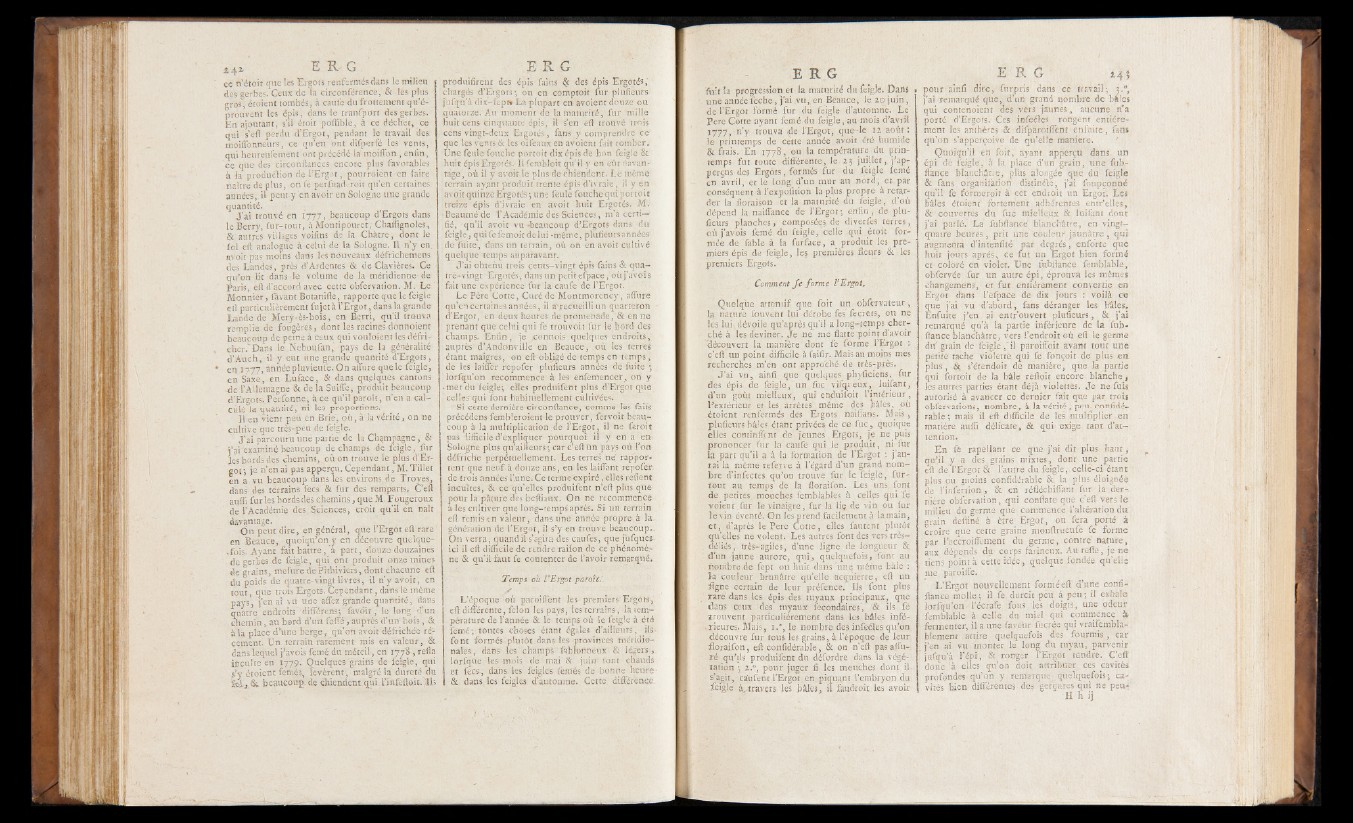 242 E R G
ce n'étoit que les Ergots renfermés dans le milieu
des gerbes. Ceux de la circonférence, & les plus
gros, étoient tombés, à cause du frottement qu'é-
prouvent les épis, dans le transport des gerbes.
En ajoutant, s'il étoit possible, à ce déchet, ce
qui s'est perdu d'Ergot, pendant le travail des
moissonneurs, ce qu'en ont dispersé les vents,
qui heureusement ont précédé la moisson, enfin,
ce que des circonstances encore plus favorables
à la production de l'Ergot, pourroient en faire
naître de plus, on se persuaderoit qu'en certaines
années, il peut y en avoir en Sologne une grande
quantité.
J'ai trouvé en 1777, beaucoup d'Ergots dans
le Berry, sur-tout, à Montipouret, Chassignoles,
& autres villages voisins de la Châtre, dont le
sol est analogue à celui de la Sologne. Il n'y en
avoit pas moins dans les nouveaux défrichemens
des Landas, près d'Ardentes & de Clavières. Ce
qu'on lit dans le volume de la méridienne de
Paris, est d'accord avec cette observation. M. Le
Monnier, savant Botaniste, rapporte que le seigle
est particulièrement sujet à l'Ergot, dans la grande
Lande de Mery-ès-bois, en Berri, qu'il trouva
remplie de fougères, dont les racines donnoient
beaucoup de peine à ceux qui vouloient les défri-
cher. Dans le Nebousan, pays de la généralité
d'Auch, il y eut une grande quantité d'Ergots,
en 1777, année pluvieuse. On assure que le seigle,
en Saxe, en Lusace, & dans quelques cantons
de l'Allemagne & de la Suisse, produit beaucoup
d'Ergots. Personne, à ce qu'il paroît, n'en a cal-
culé la quantité, ni les proportions.
Il en vient peu en Brie, où, à la vérité, on ne
cultive que très-peu de seigle.
J'ai parcouru une partie de la Champagne, &
j'ai examiné beaucoup de champs de seigle, sur
les bords des chemins, où on trouve le plus d'Er-
got; je n'en ai pas apperçu. Cependant, M. Tillet
en a vu beaucoup dans les environs de Troyes,
dans des terrains secs & sur des remparts. C'est
aussi sur les bords des chemins, que M. Fougeroux
de l'Académie des Sciences, croit qu'il en naît
davantage.
On peut dire, en général, que l'Ergot est rare
en Beauce, quoiqu'on y en découvre quelque-
fois. Ayant fait battre, à part, douze douzaines
de gerbes de seigle, qui ont produit onze mines
de grains, mesure de Pithiviers, dont chacune est
du poids de quatre-vingt livres, il n'y avoit, en
tout, que trois Ergots. Cependant, dans le même
pays, j'en ai vu une assez grande quantité, dans
quatre endroits différens; savoir, le long d'un
chemin, au bord d'un fossé, auprès d'un bois, &
à la place d'une berge, qu'on avoit défrichée ré-
cement. Un terrain rarement mis en valeur, &
dans lequel j'avois semé du méteil, en 1778, resta
inculte en 1779. Quelques grains de seigle, qui
s'y étoient semés, levèrent, malgré la dureté du
sol, & beaucoup de chiendent qui l'infestoit. Ils
E R G
produisirent des épis sains & des épis Ergotés,
chargés d'Ergots; on en comptoit sur plusieurs
jusqu'à dix-sept. La plupart en avoient douze ou
quatorze. Au moment de la maturité, sur mille
huit cens cinquante épis, il s'en est trouvé trois
cens vingt-deux Ergotés, sans y comprendre ce
que les vents & les oiseaux en avoient fait tomber.
Une seule souche portoit dix épis de bon seigle &
huit épis Ergotés. Il sembloit qu'il y en eût davan-
tage, où il y avoit le plus de chiendent. Le même
terrain ayant produit trente épis d'ivraie, il y en
avoit quinze Ergotés; une seule souche qui portoit
treize épis d'ivraie en avoit huit Ergotés. M.
Beaumé de l'Académie des Sciences, m'a certi-
fié, qu'il avoit vu beaucoup d'Ergots dans du
seigle, qui se semoit de lui-même, plusieurs années
de suite, dans un terrain, où on en avoit cultivé
quelque temps auparavant.
J'ai obtenu trois cents-vingt épis sains & qua-
tre-vingt Ergotés, dans un petit espace, où j'avois
fait une expérience sur la cause de l'Ergot.
Le Père Cotte, Curé de Montmorency, assure
qu'en certaines années, il a recueilli un quarteron
d'Ergot, en deux heures de promenade, & en ne
prenant que celui qui se trouvoit sur le bord des
champs. Enfin, je connois quelques endroits,
auprès d'Andonville en Beauce, où les terres
étant maigres, on est obligé de temps en temps,
de les laisser reposer plusieurs années de suite;
lorsqu'on recommence à les ensemencer, on y
met du seigle; elles produisent plus d'Ergot que
celles qui sont habituellement cultivées.
Si cette dernière circonstance, comme les faits
précédens sembleroient le prouver, servoit beau-
coup à la multiplication de l'Ergot, il ne seroit
pas difficile d'expliquer pourquoi il y en a en
Sologne plus qu'ailleurs; car c'est un pays où l'on
défriche perpétuellement. Les terres ne rappor-
tent que neuf à douze ans, en les laissant reposer
de trois années l'une. Ce terme expiré, elles restent
incultes, & ce qu'elles produisent n'est plus que
pour la pâture des bestiaux. On ne recommence
à les cultiver que long-temps après. Si un terrain
est remis en valeur, dans une année propre à la
génération de l'Ergot, il s'y en trouve beaucoup.
On verra, quand il s'agira des causes, que jusques
ici il est difficile de rendre raison de ce phénomè-
ne & qu'il faut se contenter de l'avoir remarqué.
Temps où l'Ergot paroît.
L'époque où paroissent les premiers Ergots,
est différente, selon les pays, les terrains, la tem-
pérature de l'année & le temps où le seigle a été
semé; toutes choses étant égales d'ailleurs, ils
sont formés plutôt dans les provinces méridio-
nales, dans les champs sablonneux & légers,
lorsque les mois de mai & juin sont chauds
et secs, dans les seigles semés de bonne heure
& dans les seigles d'automne. Cette différence
E R G
suit la progression et la maturité du seigle. Dans
une année seche, j'ai vu, en Beauce, le 20 juin,
de l'Ergot formé sur du seigle d'automne. Le
Pere Cotte ayant semé du seigle, au mois d'avril
1777, n'y trouva de l'Ergot, que le 12 août:
le printemps de cette année avoit été humide
& frais. En 1778, ou la température du prin-
temps fut toute différente, le 25 juillet, j'ap-
perçus des Ergots, formés sur du seigle semé
en avril, et le long d'un mur au nord, et par
conséquent à l'exposition la plus propre à retar-
der la floraison et la maturité du seigle, d'où
dépend la naissance de l'Ergot; enfin, de plu-
sieurs planches, composées de diverses terres,
où j'avois semé du seigle, celle qui étoit for-
mée de sable à la surface, a produit les pre-
miers épis de seigle, les premières fleurs & les
premiers Ergots.
Comment se forme l'Ergot.
Quelque attentif que soit un observateur,
la nature souvent lui dérobe ses secrets, ou ne
les lui dévoile qu'après qu'il a long-temps cher-
ché à les deviner. Je ne me flatte point d'avoir
découvert la manière dont se forme l'Ergot:
c'est un point difficile à saisir. Mais au moins mes
recherches m'en ont approché de très-près.
J'ai vu, ainsi que quelques physiciens, sur
des épis de seigle, un suc visqueux, luisant,
d'un goût mielleux, qui enduisoit l'intérieur,
l'extérieur et les arrêtes même des bâles, où
étoient renfermés des Ergots naissans. Mais,
plusieurs bâles étant privées de ce suc, quoique
elles continssent de jeunes Ergots, je ne puis
prononcer sur la cause qui le produit, ni sur
la part qu'il a à la formation de l'Ergot: j'au-
rai la même reserve à l'égard d'un grand nom-
bre d'insectes qu'on trouve sur le seigle, sur-
tout au temps de la floraison. Les uns sont
de petites mouches semblables à celles qui se
voient sur le vinaigre, sur la lie de vin ou sur
le vin éventé. On les prend facilement à la main,
et, d'après le Pere Cotte, elles sautent plutôt
qu'elles ne volent. Les autres sont des vers très-
déliés, très-agiles, d'une ligne de longueur &
d'un jaune aurore, qui, quelquefois, sont au
nombre de sept ou huit dans une même bâle:
la couleur brunâtre qu'elle acquierre, est un
signe certain de leur présence. Ils sont plus
rare dans les épis des tuyaux principaux, que
dans ceux des tuyaux secondaires, & ils se
trouvent particulièrement dans les bâles infé-
rieures. Mais, 1.°, le nombre des insectes qu'on
découvre sur tous les grains, à l'époque de leur
floraison, est considérable, & on n'est pas assu-
ré qu'ils produisent du désordre dans la végé-
tation; 2.°, pour juger si les mouches dont il
s'agit, causent l'Ergot en piquant l'embryon du
seigle à travers les bâles, il faudroit les avoir
E R G 243
pour ainsi dire, surpris dans ce travail; 3.°,
j'ai remarqué que, d'un grand nombre de bâles
qui contenoient des vers jaunes, aucune n'a
porté d'Ergots. Ces insectes rongent entière-
ment les anthères & disparoissent ensuite, sans
qu'on s'apperçoive de qu'elle maniere.
Quoiqu'il en soit, ayant apperçu dans un
épi de seigle, à la place d'un grain, une sub-
stance blanchâtre, plus alongée que du seigle
& sans organisation distincte, j'ai soupçonné
qu'il se formeroit à cet endroit un Ergot. Les
bâles étoient fortement adhérentes entr'elles,
& couvertes du suc mielleux & luisant dont
j'ai parlé. La substance blanchâtre, en vingt-
quatre heures, prit une couleur jaunâtre, qui
augmenta d'intensité par degrés, ensorte que
huit jours après, ce fut un Ergot bien formé
et coloré en violet. Une substance semblable,
observée sur un autre épi, éprouva les mêmes
changemens, et fut entièrement convertie en
Ergot dans l'espace de dix jours: voilà ce
que j'ai vu d'abord, sans déranger les bâles.
Ensuite j'en ai entr'ouvert plusieurs, & j'ai
remarqué qu'à la partie inférieure de la sub-
stance blanchâtre, vers l'endroit où est le germe
du grain de seigle, il paroissoit avant tout une
petite tache violette qui se fonçoit de plus en
plus, & s'étendoit de manière, que la partie
qui sortoit de la bâle restoit encore blanche,
les autres parties étant déjà violettes. Je ne suis
autorisé à avancer ce dernier fait que par trois
observations, nombre, à la vérité, peu considé-
rable; mais il est difficile de les multiplier en
matière aussi délicate, & qui exige tant d'at-
tention.
En se rapellant ce que j'ai dit plus haut,
qu'il y a des grains mixtes, dont une partie
est de l'Ergot & l'autre du seigle, celle-ci étant
plus ou moins considérable & la plus éloignée
de l'insertion, & en réfléchissant sur la der-
nière observation, qui constate que c'est vers le
milieu du germe que commence l'altération du
grain destiné à être Ergot, on sera porté à
croire que cette graine monstrueuse se forme
par l'accroissement du germe, contre nature,
aux dépends du corps farineux. Au reste, je ne
tiens point à cette idée, quelque fondée qu'elle
me paroisse.
L'Ergot nouvellement formé est d'une consi-
stance molle; il se durcit peu à peu; il exhale
lorsqu'on l'écrase sous les doigts, une odeur
semblable à celle du miel qui commence à
fermenter, il a une saveur sucrée qui vraisembla-
blement attire quelquefois des fourmis, car
j'en ai vu monter le long du tuyau, parvenir
jusqu'à l'épi, & ronger l'Ergot tendre. C'est
donc à elles qu'on doit attribuer ces cavités
profondes qu'on y remarque quelquefois; ca-
vités bien différentes des gerçures qui ne peu-
H h ij